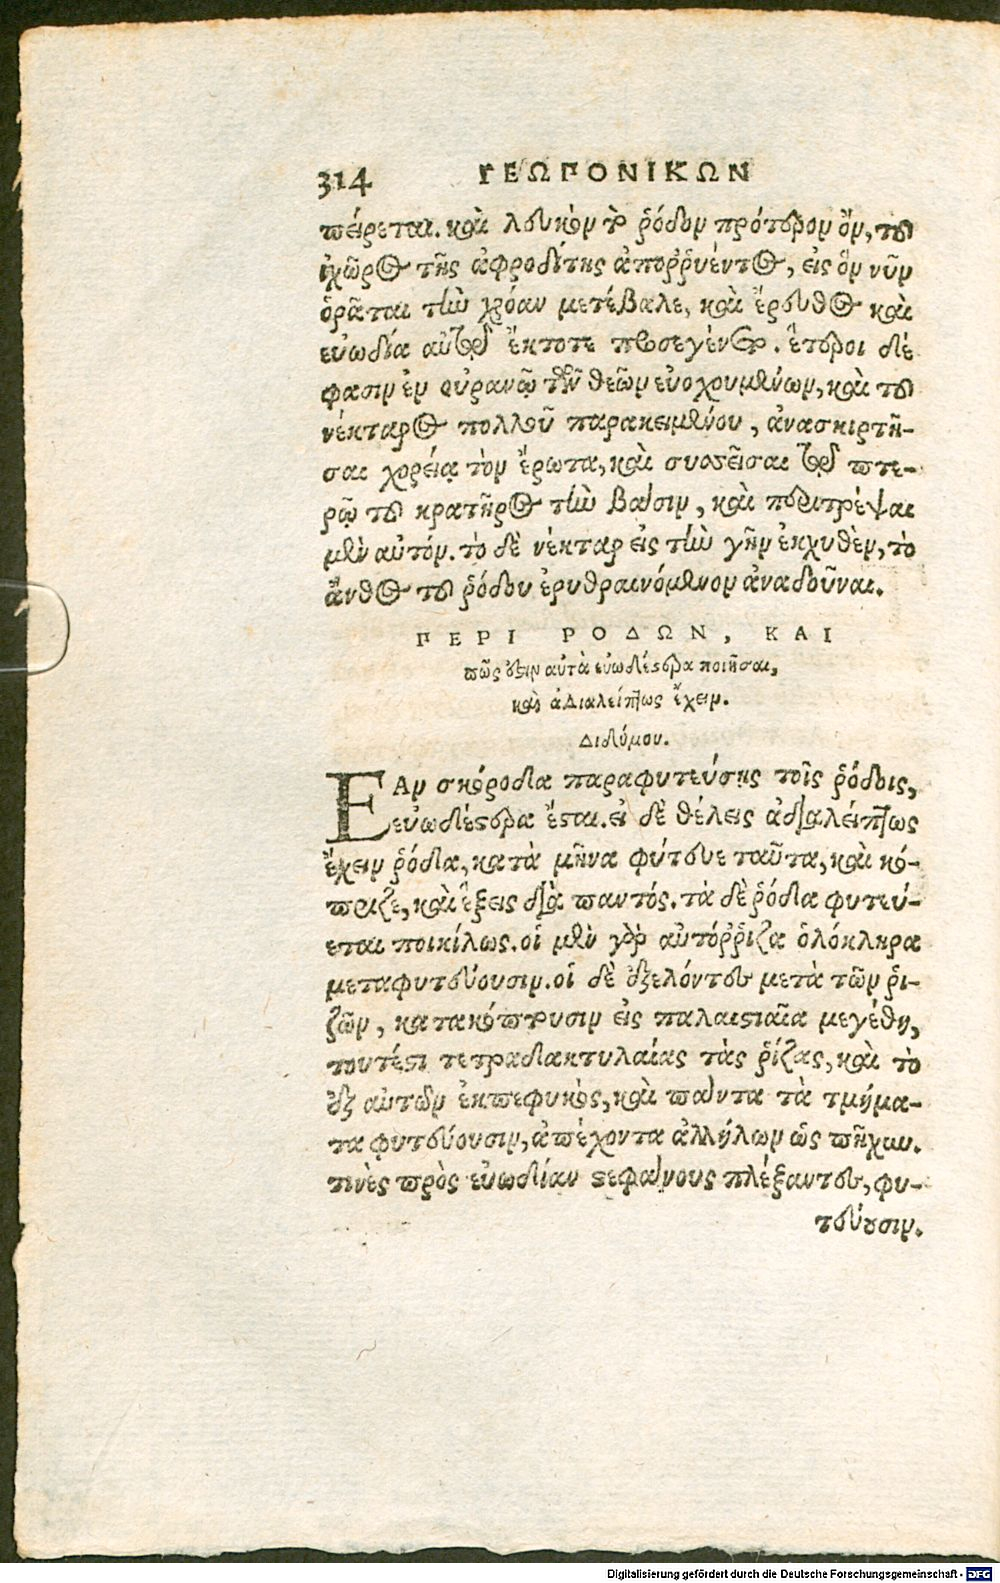 314 ΓΕΩΠΟΝΙΚΩΝ
πείρεται. καὶ λευκὸν τὸ ῥόδον πρότερον ὂν, τοῦ
ἰχῶρος τῆς ἀφροδίτης ἀποῤῥυέντος, εἰς ὃν νῦν
ὁρᾶται τὴν χρόαν μετέβαλε, καὶ ἔρευθος καὶ
εὐωδία αὐτῷ ἔκτοτε προσεγένετο. ἕτεροι δέ
φασιν ἐν οὐρανῷ τῶν θεῶν εὐοχουμένων, καὶ τοῦ
νέκταρος πολλοῦ παρακειμένου, ἀνασκιρτῆ-
σαι χορείᾳ τὸν ἔρωτα, καὶ συσσεῖσαι τῷ πτε-
ρῷ τοῦ κρατῆρος τὴν βάσιν, καὶ περιτρέψαι
μὲν αὐτόν. τὸ δὲ νέκταρ εἰς τὴν γῆν ἐκχυθὲν, τὸ
ἄνθος τοῦ ῥόδου ἐρυθραινόμενον ἀναδοῦναι.
ΠΕΡΙ ΡΟΔΩΝ, ΚΑΙ
πῶς ἔξιν αὐτὰ εὐωδέστερα ποιῆσαι,
καὶ ἀδιαλείπτως ἔχειν.
Διδύμου.
ΕΑν σκόροδα παραφυτεύσῃς τοῖς ῥόδοις,
εὐωδέστερα ἔσται. εἰ δὲ θέλεις ἀδιαλείπτως
ἔχειν ῥόδα, κατὰ μῆνα φύτευε ταῦτα, καὶ κό-
πριζε, καὶ ἕξεις διὰ παντός. τὰ δὲ ῥόδα φυτεύ-
εται ποικίλως. οἱ μὲν γὰρ αὐτόῤῥιζα ὁλόκληρα
μεταφυτεύουσιν. οἱ δὲ ἐξελόντες μετὰ τῶν ῥι-
ζῶν, κατακόπτουσιν εἰς παλαιστιαῖα μεγέθη,
τουτέστι τετραδακτυλαίας τὰς ῥίζας, καὶ τὸ
ἐξ αὐτῶν ἐκπεφυκὸς, καὶ πάντα τὰ τμήμα-
τα φυτεύουσιν, ἀπέχοντα ἀλλήλων ὡς πῆχυν.
τινὲς πρὸς εὐωδίαν στεφάνους πλέξαντες, φυ-
τεύουσιν.
Digitalisierung gefördert durch die Deutsche Forschungsgemeinschaft - DFG